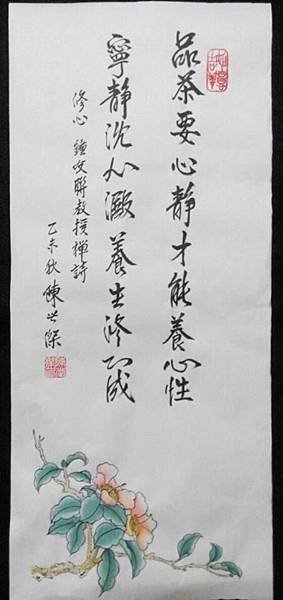 品茶要心靜才能養心性
寧靜沈心澱養生修可成
修心 鐘文聯教授禪詩
乙未秋 陳世傑